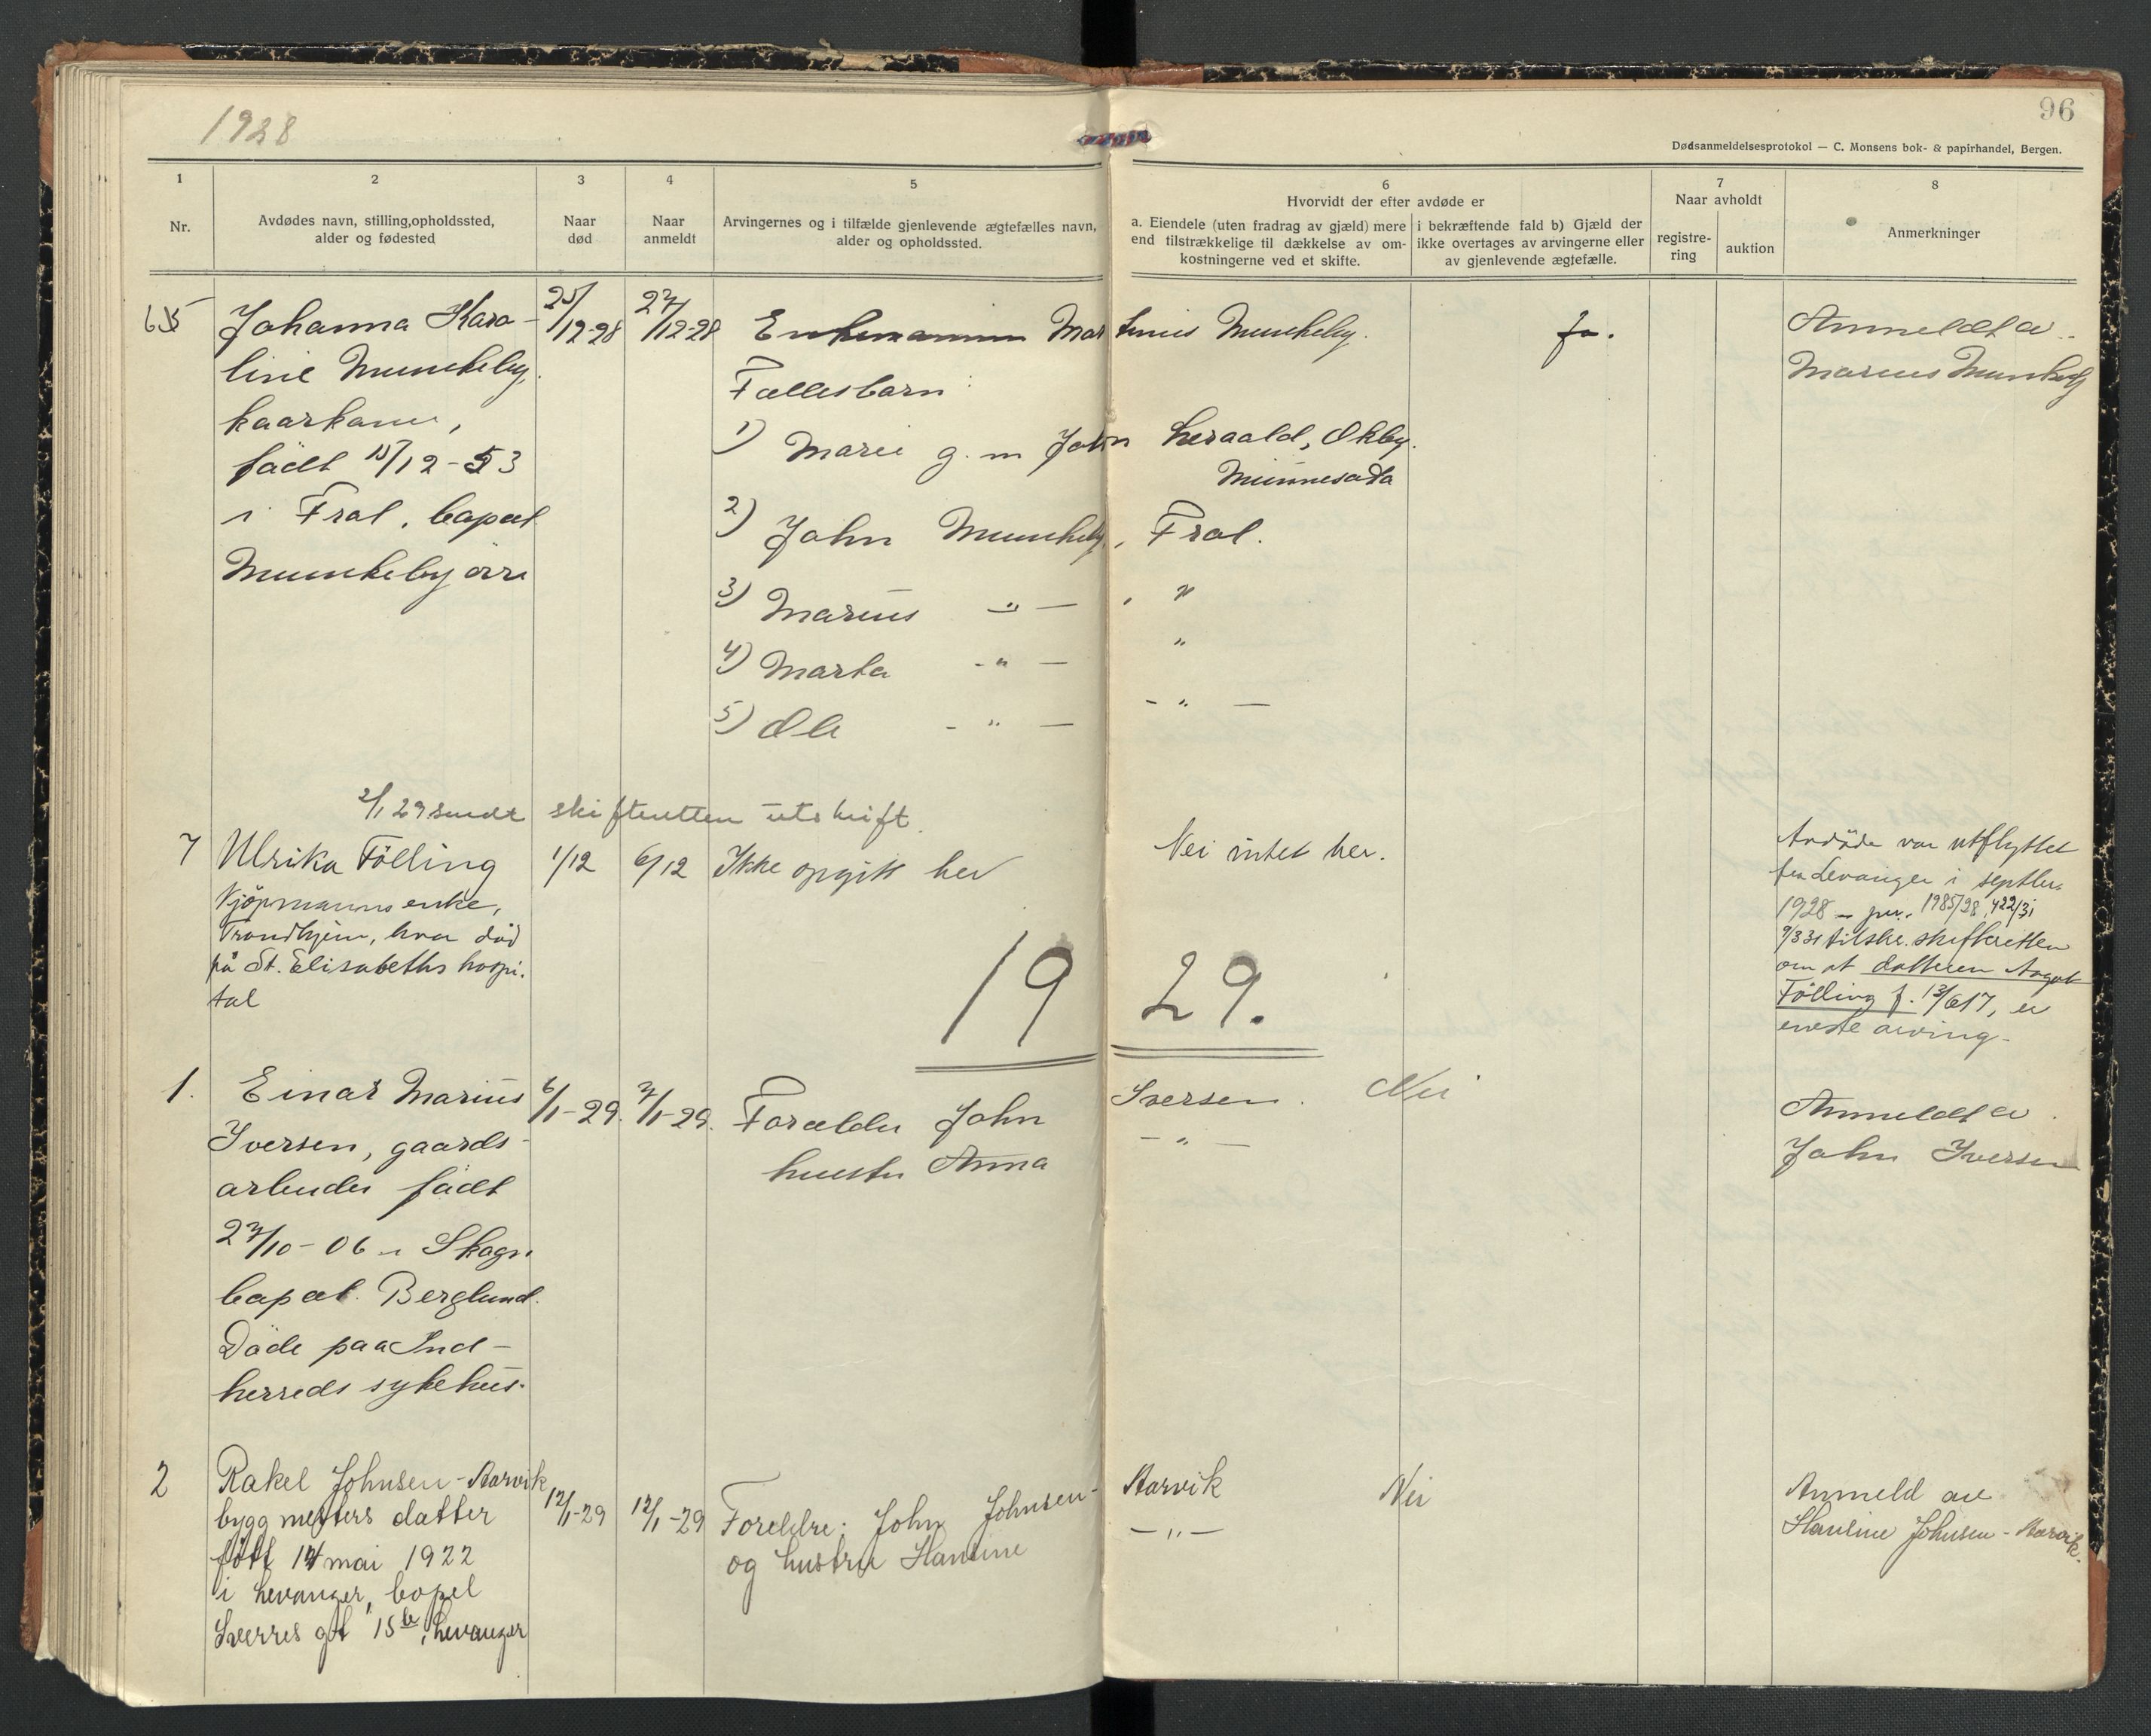 1928
96
Dødsanmeldelsesprotokol — C. Monsens bok- & papirhandel, Bergen.
1
Nr.
2
Avdødes navn, stilling, opholdssted,
alder og fødested
3
Naar
død
4
Naar
anmeldt
5
Arvingernes og i tilfælde gjenlevende ægtefælles navn,
alder og opholdssted.
6
Hvorvidt der efter avdøde er
a. Eiendele (uten fradrag av gjæld) mere
end tilstrækkelige til dækkelse av om-
kostningerne ved et skifte.
i bekræftende fald b) Gjæld der
ikke overtages av arvingerne eller
av gjenlevende ægtefælle.
7
Naar avholdt
registre-
ring
auktion
8
Anmerkninger
Johanna Karo-
line Munkeby,
kaarkone,
født 15/12-53
i Frol, bopæl
Munkeby øvre
25/12-28
27/12-28
Enkemannen Martinus Munkeby.
Fællesbarn:
1) Marie g. m John Lernald,
Minnesota
2) John Munkeby, Frol.
3) Marius -"- , "
4) Marta -"- "
5) Ole -"- -"-
ja.
Anmeldt av
Marius Munkeby
2/1 29 sendt skifteretten utskrift.
7
Ulrika Fölling
Kjöpmannsenke,
Trondhjem, hvor död
på St. Elisabeths hospi-
tal
1/12
6/12
Ikke opgitt her
Nei intet her.
Avdöde var utflyttet
fra Levanger i septbr.
1928 - jnr. 1985/28, 422/31
9/3 31 tilskr. skifteretten
om at datteren Aagot
Fölling f. 13/6 17, er
eneste arving.
1929.
1.
Einar Marius
Iversen, gaards-
arbeider født
27/10-06 i Skogn
bopæl Berglund.
Døde paa Ind-
herreds sykehus.
6/1-29.
7/1-29.
Forælder John Iversen.
hustru Anna -"-
Nei
Anmeldt av
John Iversen
2
Rakel Johnsen-Aarvik
byggmesters datter
født 14 mai 1922
i Levanger, bopel
Sverres gt 15 b, Levanger
12/1-29
12/1-29
Foreldre: John Johnsen-Aarvik
og hustru Hanline -"-
Nei
Anmeld av
Hanline Johnsen-Aarvik.